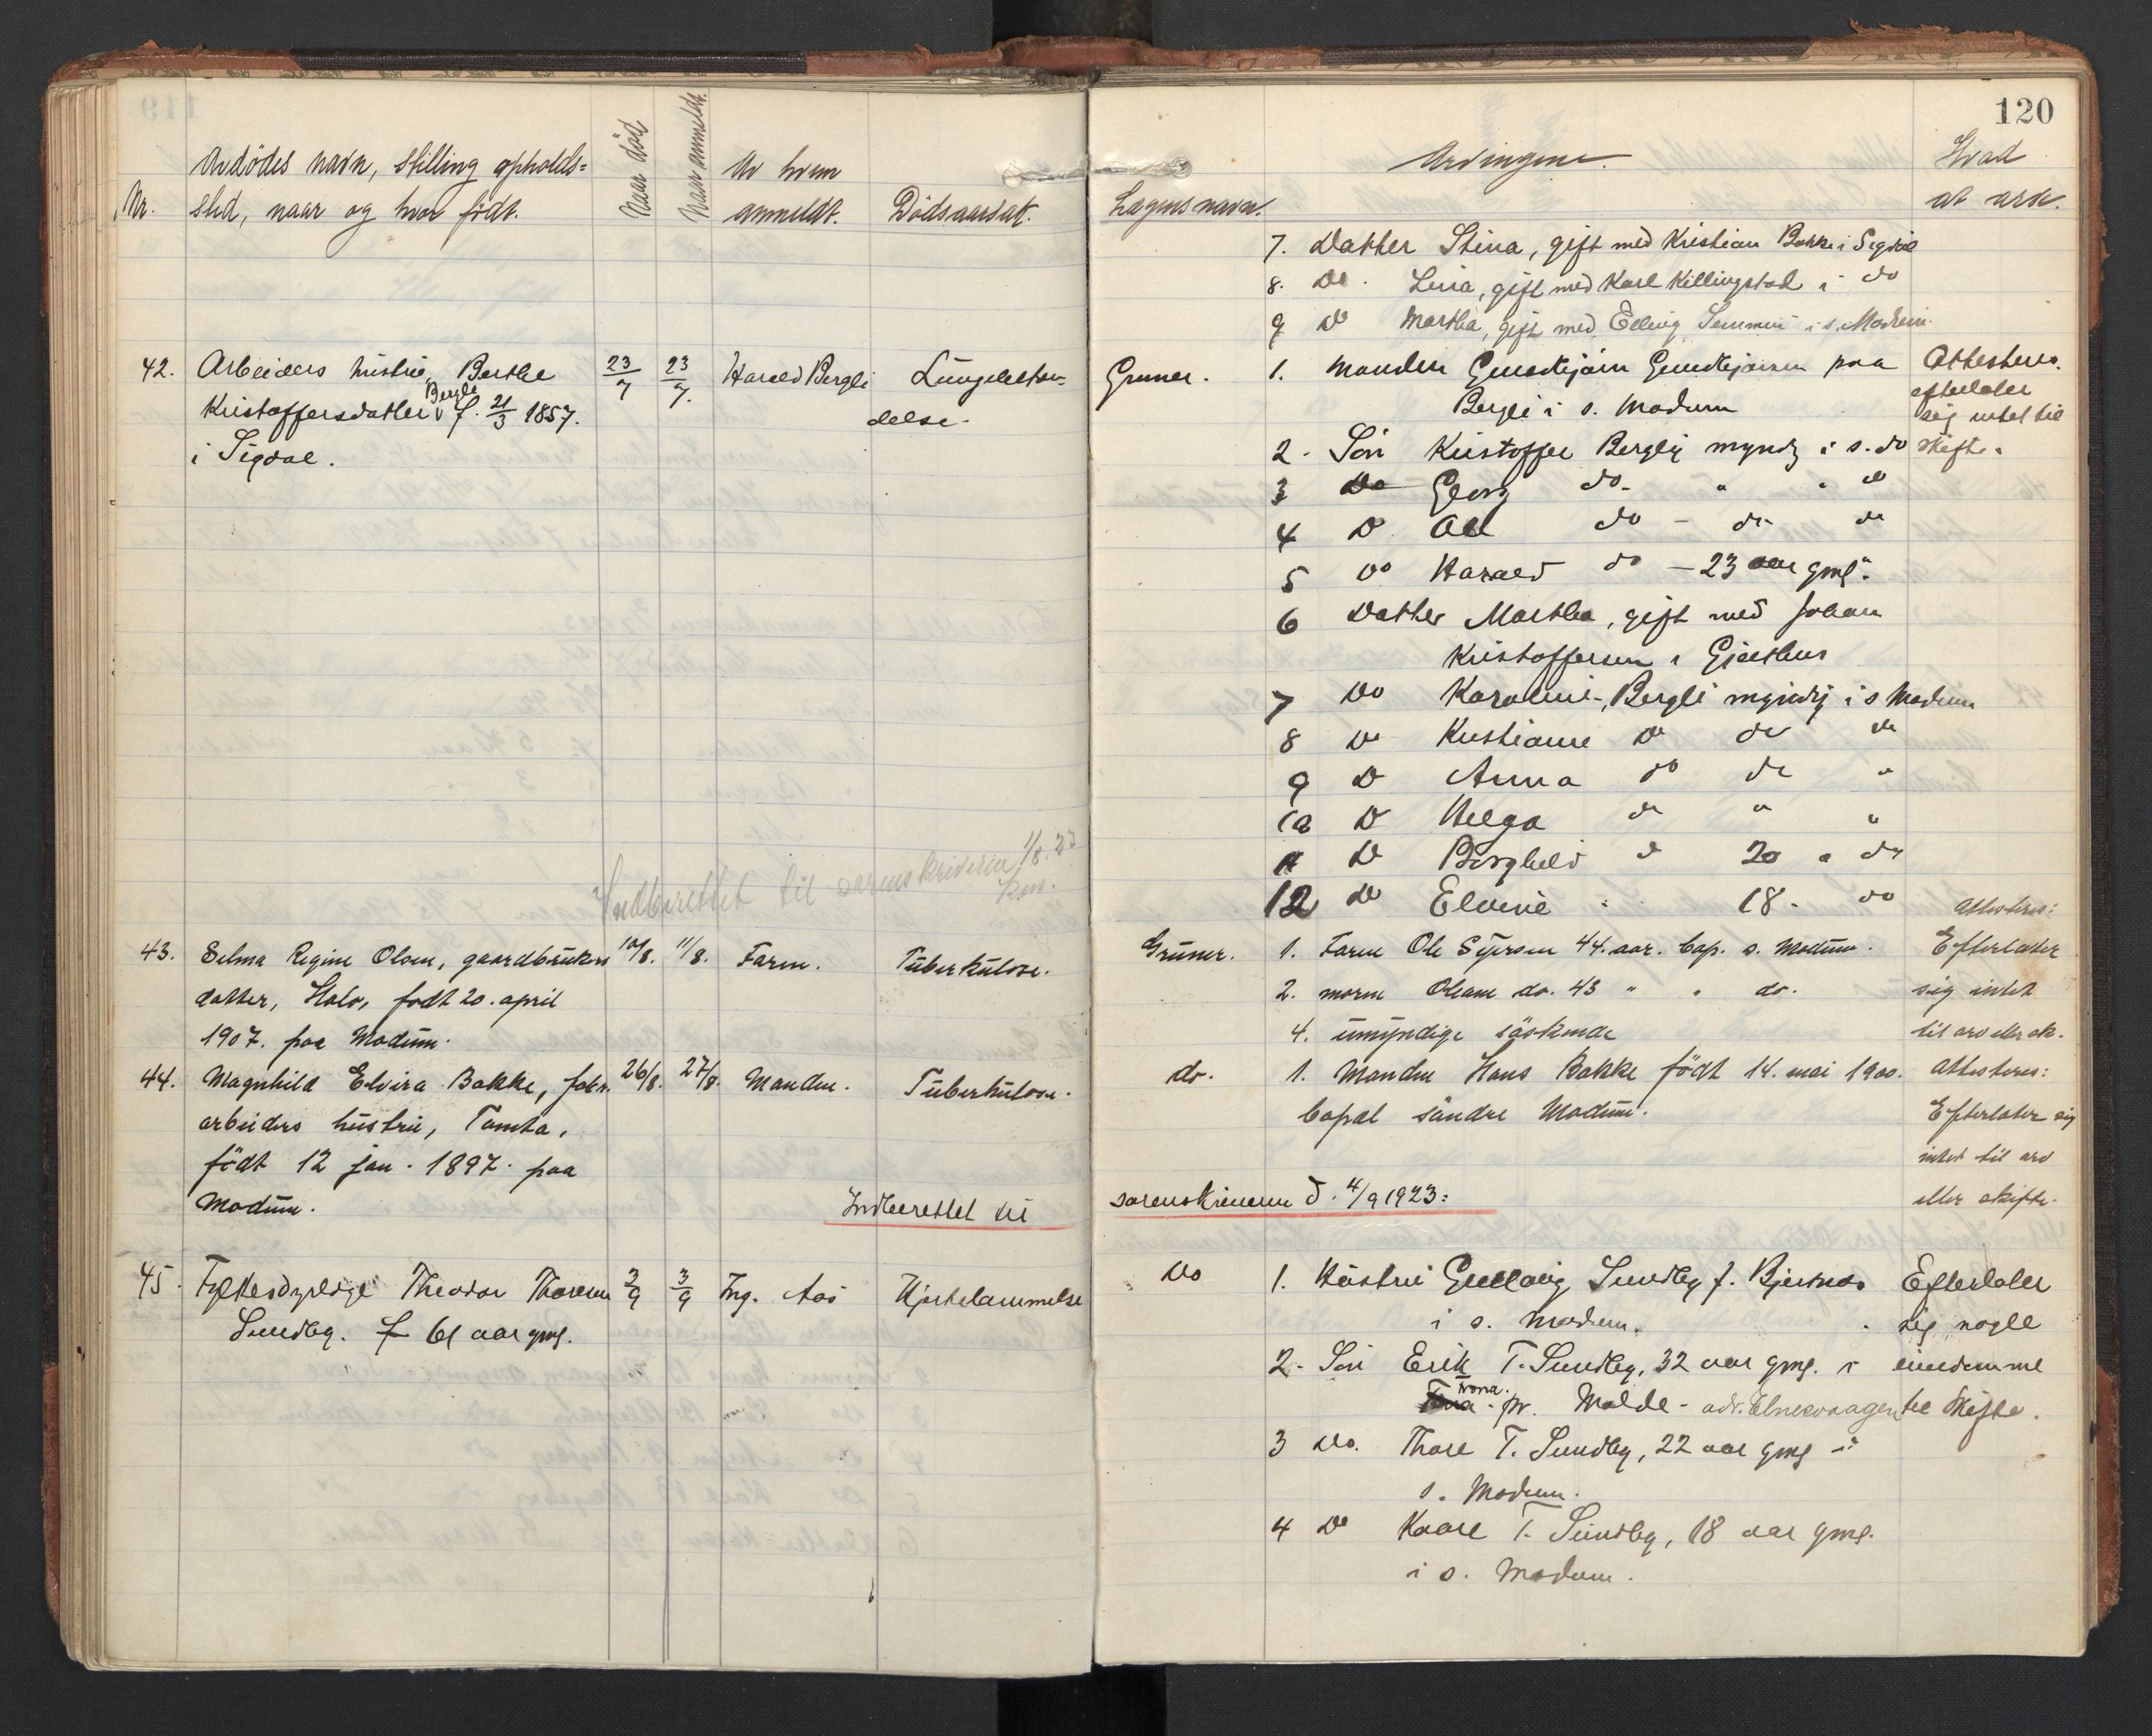 120
Avdödes navn, stilling opholds=
Nr. sted, naar og hvor födt.
Naar död
Naar anmeldt.
Av hvem
anmeldt.
Dödsaarsak.
Lægens navn.
Arvingene.
Hvad
at arve.
7. Datter Stina, gift med Kristian Bakke i Sigdal
8. Do. Lina, gift med Karl Killingstad i do
9 Do Martha, gift med Elling i s. Modum.
42. Arbeiders hustru, Berthe 23/7 23/7. Harald Bergli Lungebetæn=
Kristoffersdatter Bergli f. 21/3 1857. delse.
i Sigdal.
Gruner. 1. Manden Gundbjørn Gundbjørnsen paa Attesteres.
Bergli i s. Modum efterlater
sig intet til
2. Sön Kristoffer Bergli myndig i s. do skifte.
3 Do Georg do. " " do
4 D. Olel do - do do
5 Do Harald do - 23 aar gml.
6 Datter Martha, gift med Johan
Kristoffersen i Gjethus
7 Do Karoline, Bergli myndig i s Modum
8 Do Kristiane D do do
9 D Anna do do "
10 D Helga do " "
11 D Borghild d 20 " do
12 do Elvine . 18. do
Indberettet til sorenskriveren 1/8. 23
43. Selma Regine Olsen, gaardbrukers 10/8. 11/8. Faren. Tüberkülose.
datter, Halo, født 20. april
1907. paa Modum.
Grüner. 1. Faren Ole Syversen 44. aar. bop. s. Modum. Attesteres:
Efterlater
2. moren Oleane do. 43 " " do. sig intet
4. ümyndige söskende til arv eller sk.
44. Magnhild Elvira Bakke, fabr. 26/8. 27/8. Manden. Tüberkülose.
arbeiders hustru, Tomta,
födt 12 jan. 1897. paa
Modum.
do. 1. Manden Hans Bakke födt 14. mai 1900. Attesteres:
bopæl söndre Modum. Efterlater sig
intet til arv
eller skifte.
Indberettet til sorenskriveren d. 4/9 1923:
45. Theodor Thoresen 3/9 3/9 Ing. Aas Hjertelammelse
Sundby. f 61 aar gml.
Do 1. Hustru Gudlaug Sundby f. Bjertnæs Efterlater
i s. Modum. sig nogle
2. Sön Erik T. Sundby, 32 aar gml. i eiendomme
Trona. pr. Molde - adr. Elnesvaagen til skifte.
3 Do. Thore T. Sundby, 22 aar gml i
s. Modum.
4 Do Kaare T. Sundby, 18 aar gml.
i s. Modum.